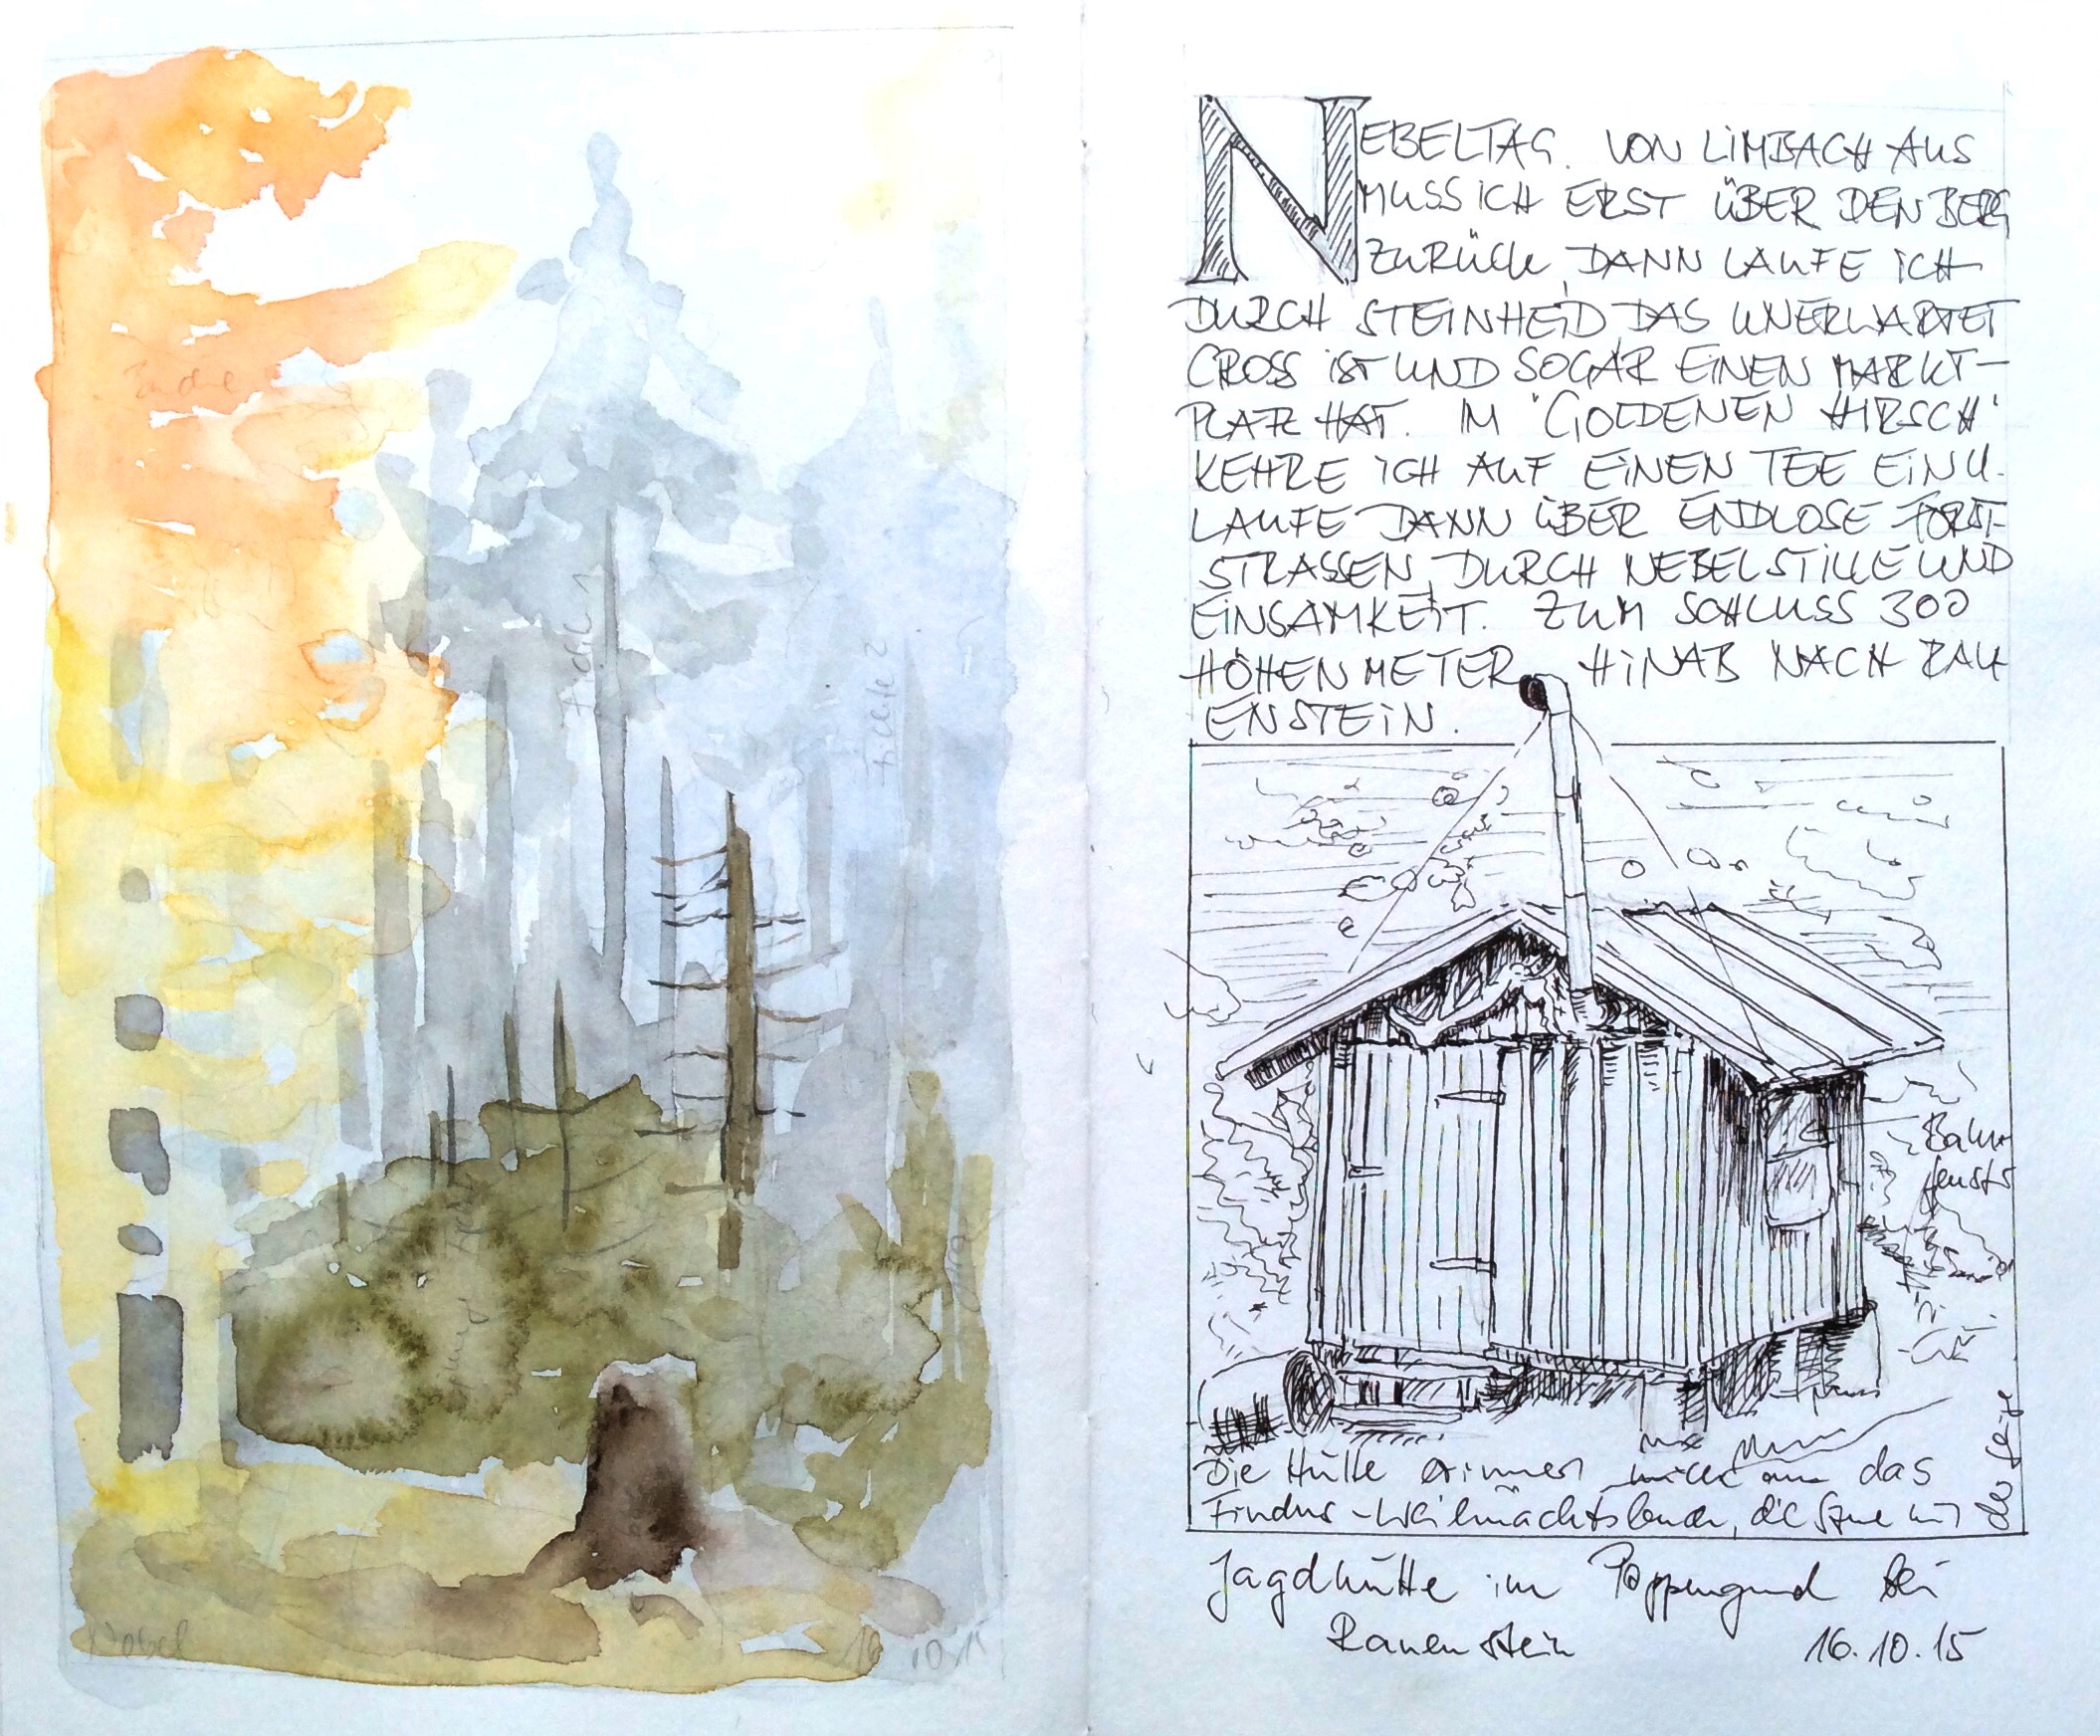 Nebel
16.10.15
Fichte 2
NEBELTAG. VON LIMBACH AUS
MUSS ICH ERST ÜBER DEN BERG
ZURÜCK, DANN LAUFE ICH
DURCH STEINHEID, DAS UNERWARTET
GROSS IST UND SOGAR EINEN MARKT-
PLATZ HAT. IM "GOLDENEN HIRSCH"
KEHRE ICH AUF EINEN TEE EIN U.
LAUFE DANN ÜBER ENDLOSE FORST-
STRASSEN, DURCH NEBELSTILLE UND
EINSAMKEIT. ZUM SCHLUSS 300
HÖHENMETER HINAB NACH RAU
ENSTEIN.
Bahn
fenster
Die Hütte erinnert mich an das
Findus-Weihnachtsbuch, die Szene mit
der Säge
Jagdhütte im Poppengrund bei
Rauenstein 16.10.15